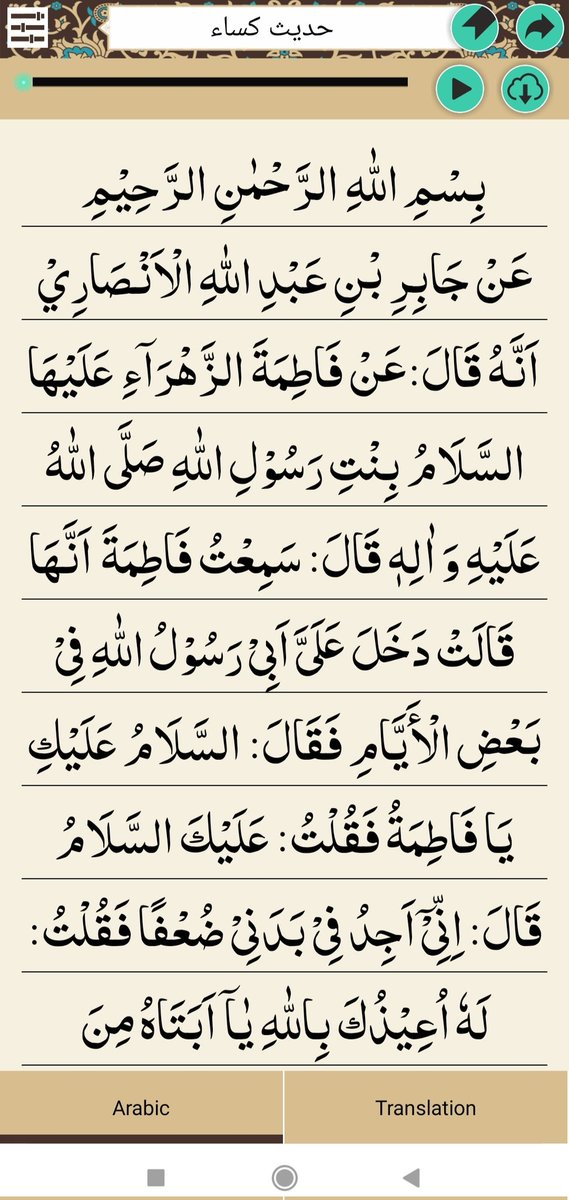 حدیث کساء
بِسْمِ اللهِ الرَّحْمٰنِ الرَّحِيْمِ
عَنْ جَابِرِ بْنِ عَبْدِ اللهِ الْاَنْصَارِيْ
اَنَّهُ قَالَ: عَنْ فَاطِمَةَ الزَّهْرَآءِ عَلَيْهَا
السَّلَامُ بِنْتِ رَسُوْلِ اللهِ صَلَّى اللهُ
عَلَيْهِ وَ اٰلِهٖ قَالَ: سَمِعْتُ فَاطِمَةَ اَنَّهَا
قَالَتْ دَخَلَ عَلَيَّ اَبِيْ رَسُوْلُ اللهِ فِيْ
بَعْضِ الْأَيَّامِ فَقَالَ: السَّلَامُ عَلَيْكِ
يَا فَاطِمَةُ فَقُلْتُ: عَلَيْكَ السَّلَامُ
قَالَ: اِنِّيْٓ اَجِدُ فِيْ بَدَنِيْ ضُعْفًا فَقُلْتُ:
لَهٗ اُعِيْذُكَ بِاللهِ يٰآ اَبَتَاهُ مِنَ
Arabic Translation